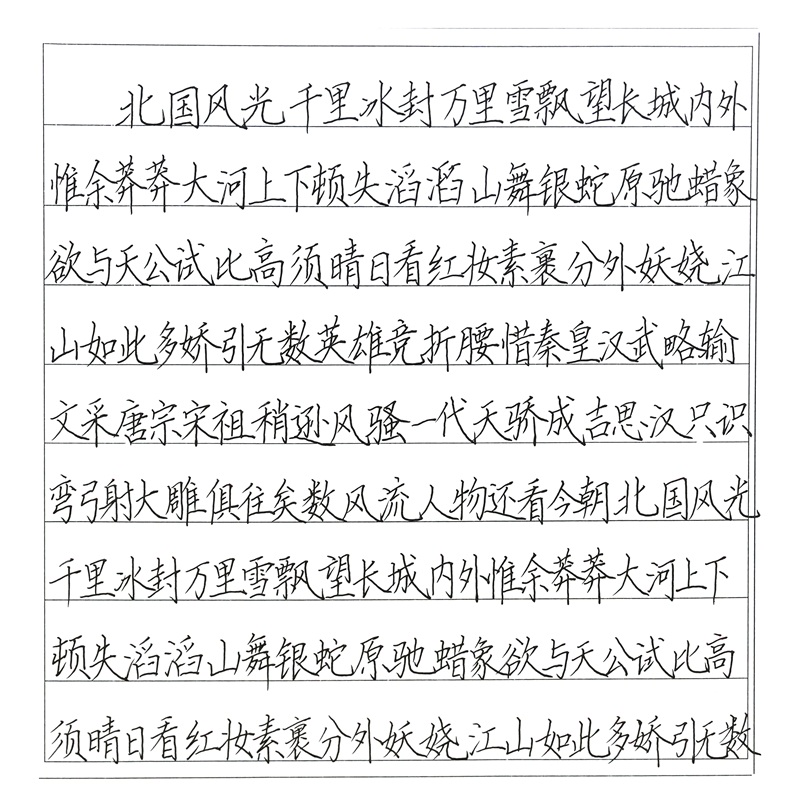 北国风光千里冰封万里雪飘望长城内外
惟余莽莽大河上下顿失滔滔山舞银蛇原驰蜡象
欲与天公试比高须晴日看红妆素裹分外妖娆江
山如此多娇引无数英雄竞折腰惜秦皇汉武略输
文采唐宗宋祖稍逊风骚一代天骄成吉思汉只识
弯弓射大雕俱往矣数风流人物还看今朝北国风光
千里冰封万里雪飘望长城内外惟余莽莽大河上下
顿失滔滔山舞银蛇原驰蜡象欲与天公试比高
须晴日看红妆素裹分外妖娆江山如此多娇引无数